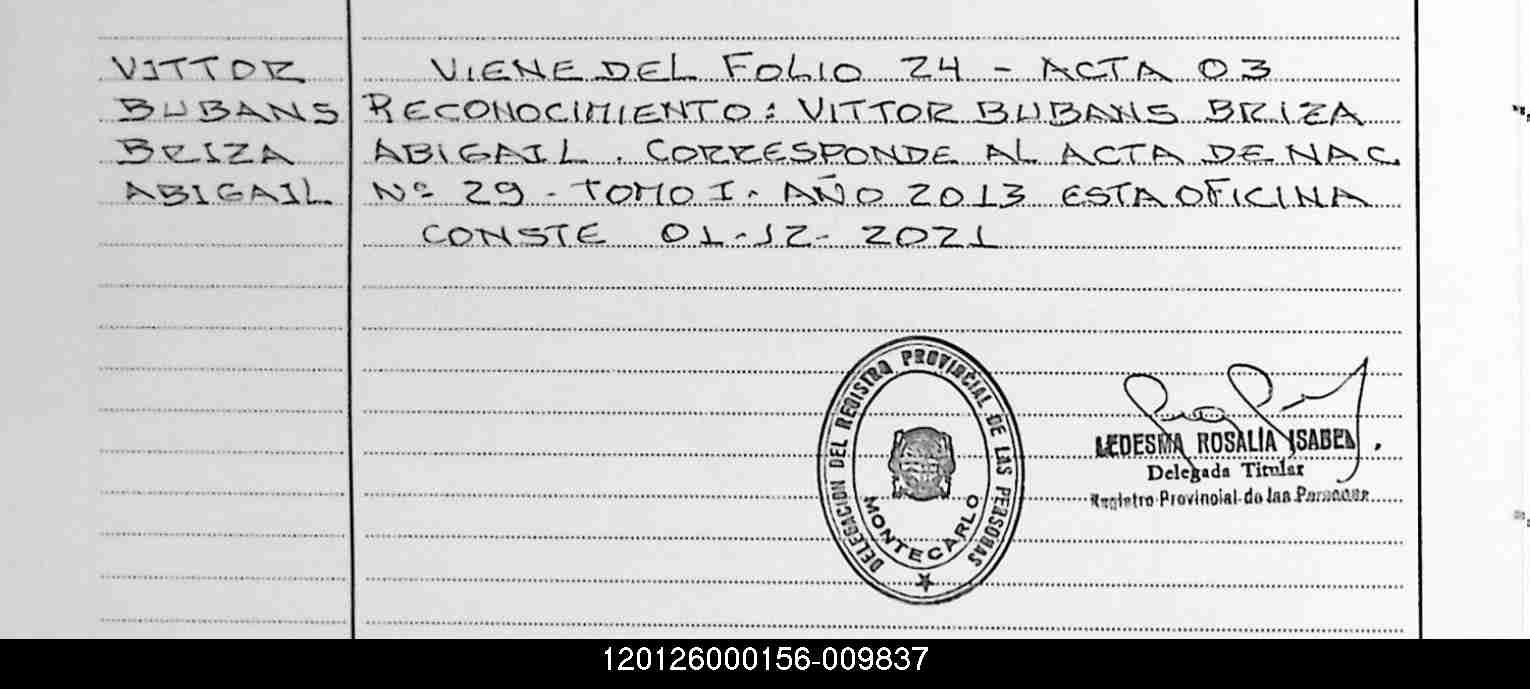 VITTOR
BUBANS
BRIZA
ABIGAIL
VIENE DEL FOLIO 24 - ACTA 03
RECONOCIMIENTO: VITTOR BUBANS BRIZA
ABIGAIL. CORRESPONDE AL ACTA DE NAC.
Nº 29 - TOMO I - AÑO 2013 ESTA OFICINA
CONSTE 01-12-2021
DELEGACION DEL REGISTRO PROVINCIAL DE LAS PERSONAS
MONTECARLO
LEDESMA ROSALIA ISABEL
Delegada Titular
Registro Provincial de las Personas
120126000156-009837